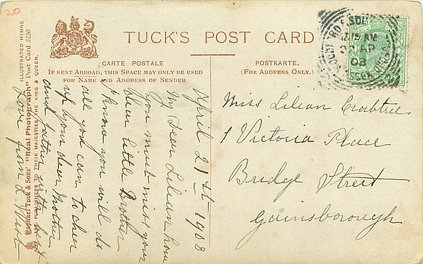 20
TUCK'S POST CARD
CARTE POSTALE
IF SENT ABROAD, THIS SPACE MAY ONLY BE USED
FOR NAME AND ADDRESS OF SENDER
POSTKARTE.
(FOR ADDRESS ONLY.)
ILLUSTRATED HYMNS
Post Card 5250
April 21st 1908
My Dear Lilian how
you must miss your
dear little Brother
I know you will do
all you can to cheer
up your dear Mother
and father with
love from
Miss Lilian Crabtree
1 Victoria Place
Bridge Street
Gainsborough
AP
08